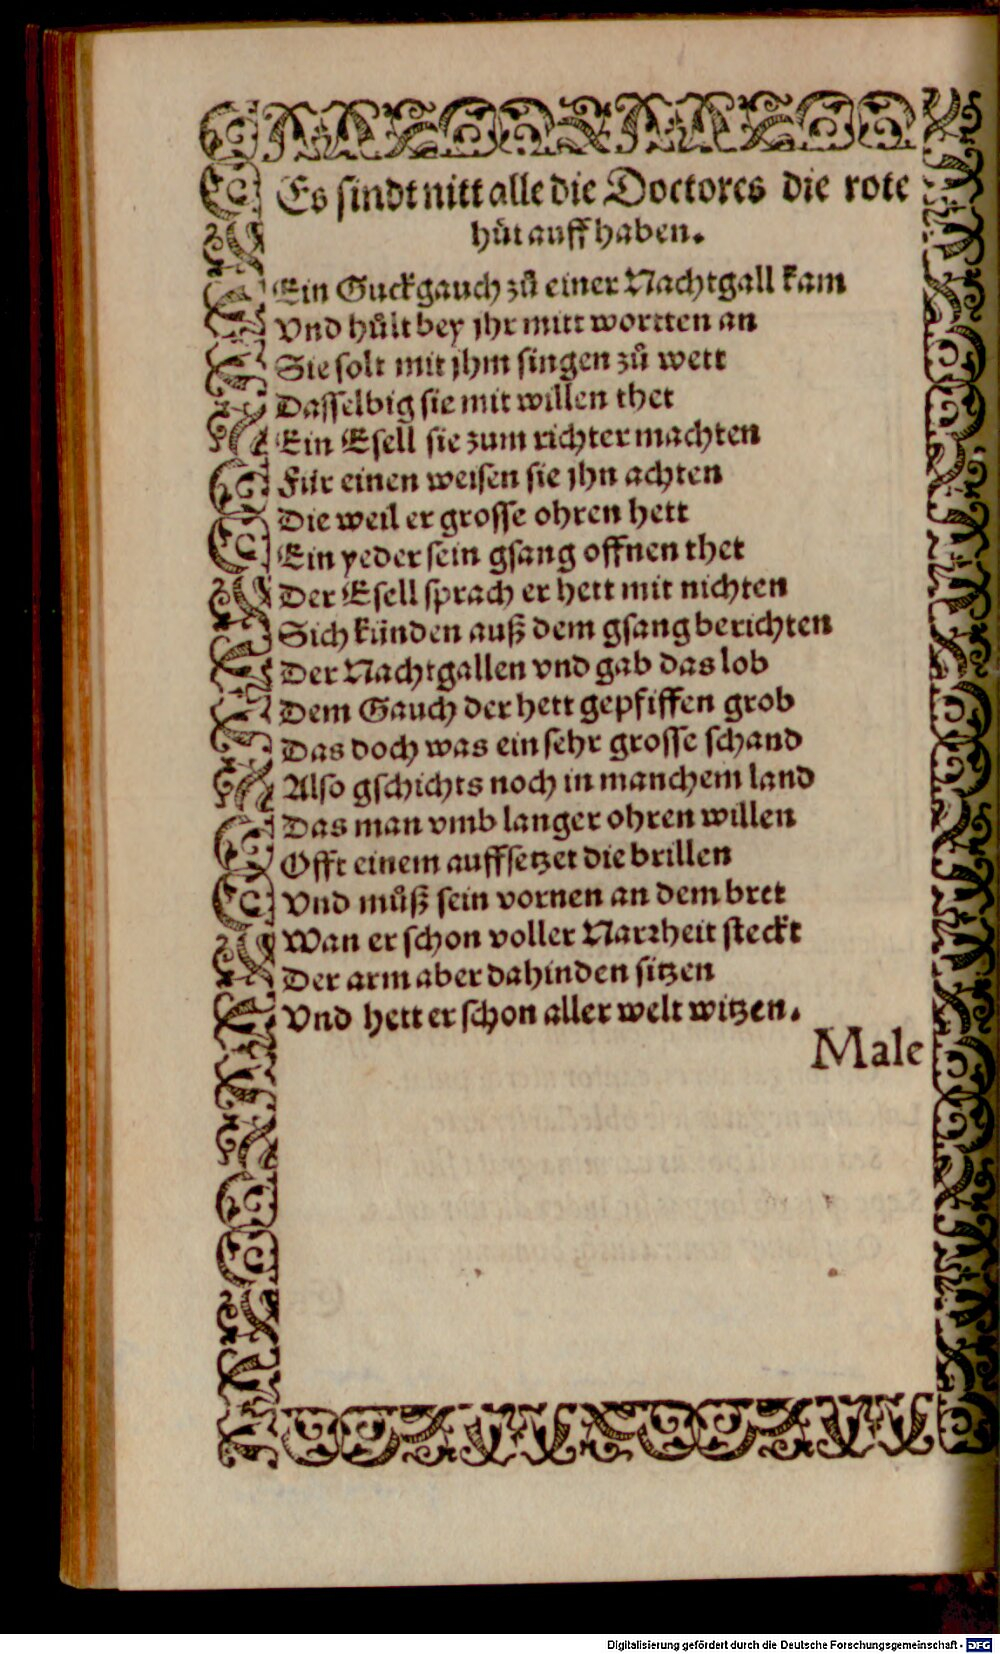 Es sindt nitt alle die Doctores die rote
huͤt auff haben.
Ein Guckgauch zuͦ einer Nachtgall kam
Vnd huͤlt bey jhr mitt wortten an
Sie solt mit jhm singen zuͦ wett
Dasselbig sie mit willen thet
Ein Esell sie zum richter machten
Für einen weisen sie jhn achten
Die weil er grosse ohren hett
Ein yeder sein gsang offnen thet
Der Esell sprach er hett mit nichten
Sich künden auß dem gsang berichten
Der Nachtgallen vnd gab das lob
Dem Gauch der hett gepfiffen grob
Das doch was ein sehr grosse schand
Also gschichts noch in manchem land
Das man vmb langer ohren willen
Offt einem auffsetzet die brillen
Vnd muͦß sein vornen an dem bret
Wan er schon voller Narꝛheit steckt
Der arm aber dahinden sitzen
Vnd hett er schon aller welt witzen.
Male
Digitalisierung gefördert durch die Deutsche Forschungsgemeinschaft - DFG